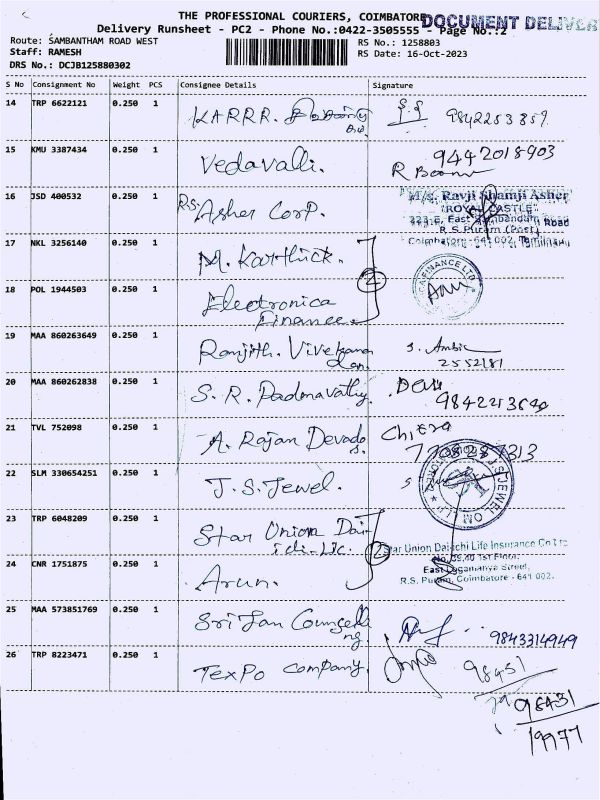 THE PROFESSIONAL COURIERS, COIMBATORE
DOCUMENT DELIVER
Delivery Runsheet - PC2 - Phone No.:0422-3505555 - Page No.:2
Route: SAMBANTHAM ROAD WEST
RS No.: 1258803
Staff: RAMESH
RS Date: 16-Oct-2023
DRS No.: DCJB125880302
S No Consignment No Weight PCS Consignee Details Signature
14 TRP 6622121 0.250 1 KARRR. 9842253859
15 KMU 3387434 0.250 1 Vedavalli. 9442018903
16 JSD 400532 0.250 1 RS: Asher Corp.
M/s. Ravji Shamji Asher
"ROYAL CASTLE"
223-E, East Sambandum Road
R.S. Puram (Post)
Coimbatore - 641 002, Tamilnadu
17 NKL 3256140 0.250 1 M. Karthick.
2
18 POL 1944503 0.250 1 Electronica
Finance.
FINANCE LTD
19 MAA 860263649 0.250 1 Ranjith. Vivekana
dan.
S. Ambic
2552181
20 MAA 860262838 0.250 1 S. R. Padmavathy.
21 TVL 752098 0.250 1 A. Rajan Devado
s.
Chitra
22 SLM 330654251 0.250 1 J. S. Jewel.
23 TRP 6048209 0.250 1 Star Union Dai
ichi-Lic.
2
Star Union Dai-ichi Life Insurance Co Ltd
No, 39,40 1st Floor,
East Logamanya Street,
R.S. Puram, Coimbatore - 641 002.
24 CNR 1751875 0.250 1 Arun.
25 MAA 573851769 0.250 1 Sri Jan Counselli
ng.
9843314949
26 TRP 8223471 0.250 1 Texpo Company.
98431
98431
19977